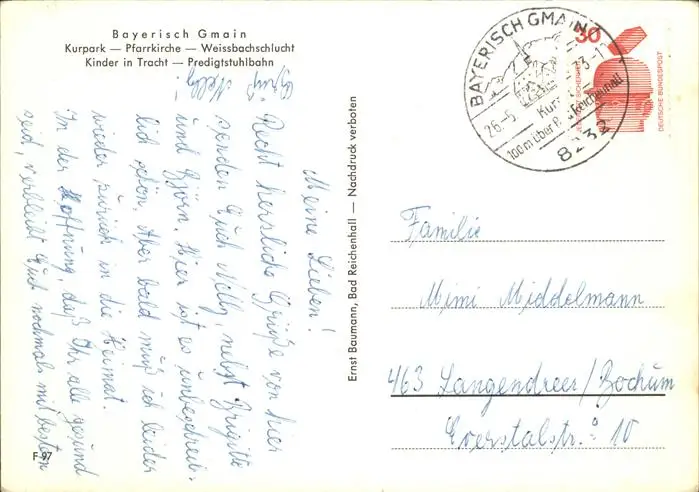 Bayerisch Gmain
Kurpark — Pfarrkirche — Weissbachschlucht
Kinder in Tracht — Predigtstuhlbahn
Meine Lieben!
Recht herzliche Grüße von hier
senden Euch Nelly, nebst Brigitte
und Björn. Hier ist es unbeschreib-
lich schön. Aber bald muß ich leider
wieder zurück in die Heimat.
In der Hoffnung, daß Ihr alle gesund
seid, verbleibt Euch nochmals mit besten
Gruß
Nelly.
F 97
Ernst Baumann, Bad Reichenhall — Nachdruck verboten
BAYERISCH GMAIN
26.-5
73-1
Kur
100m über Bad Reichenhall
8232
30
DEUTSCHE BUNDESPOST
Familie
Mimi Middelmann
463 Langendreer/Bochum
Everstalstr. 10